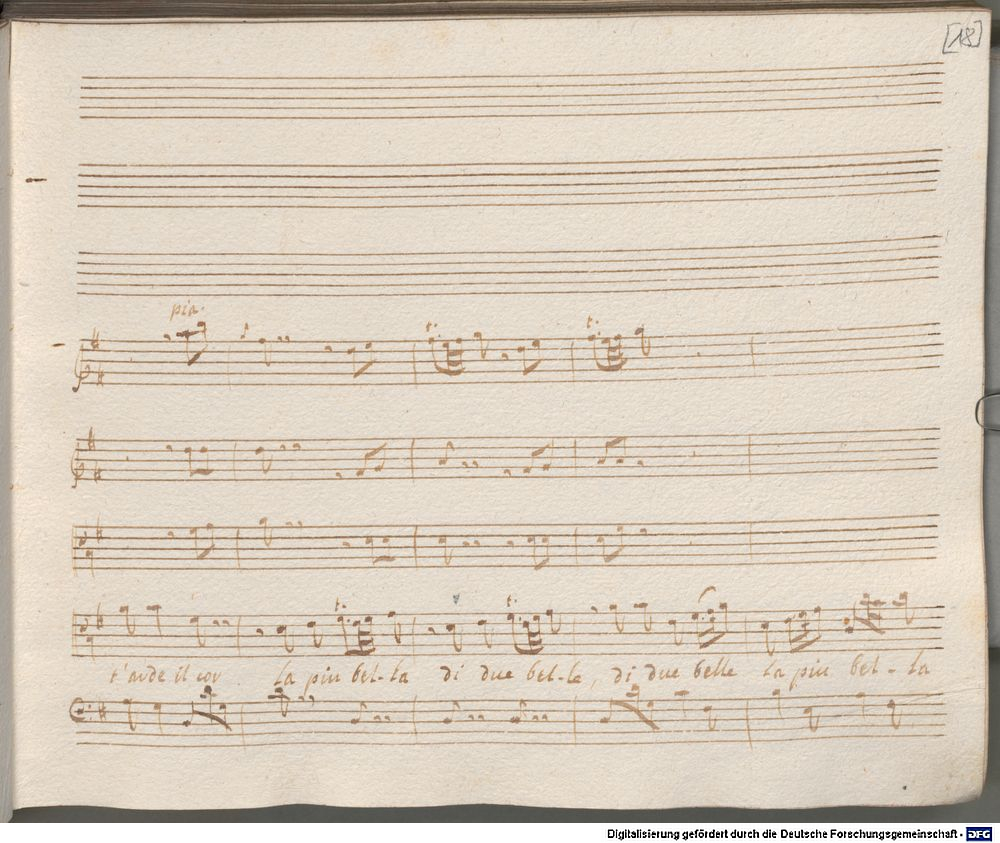 [18]
pia.
t'arde il cor la piu bel-la di due bel-le, di due belle la piu bel-la
Digitalisierung gefördert durch die Deutsche Forschungsgemeinschaft - DFG